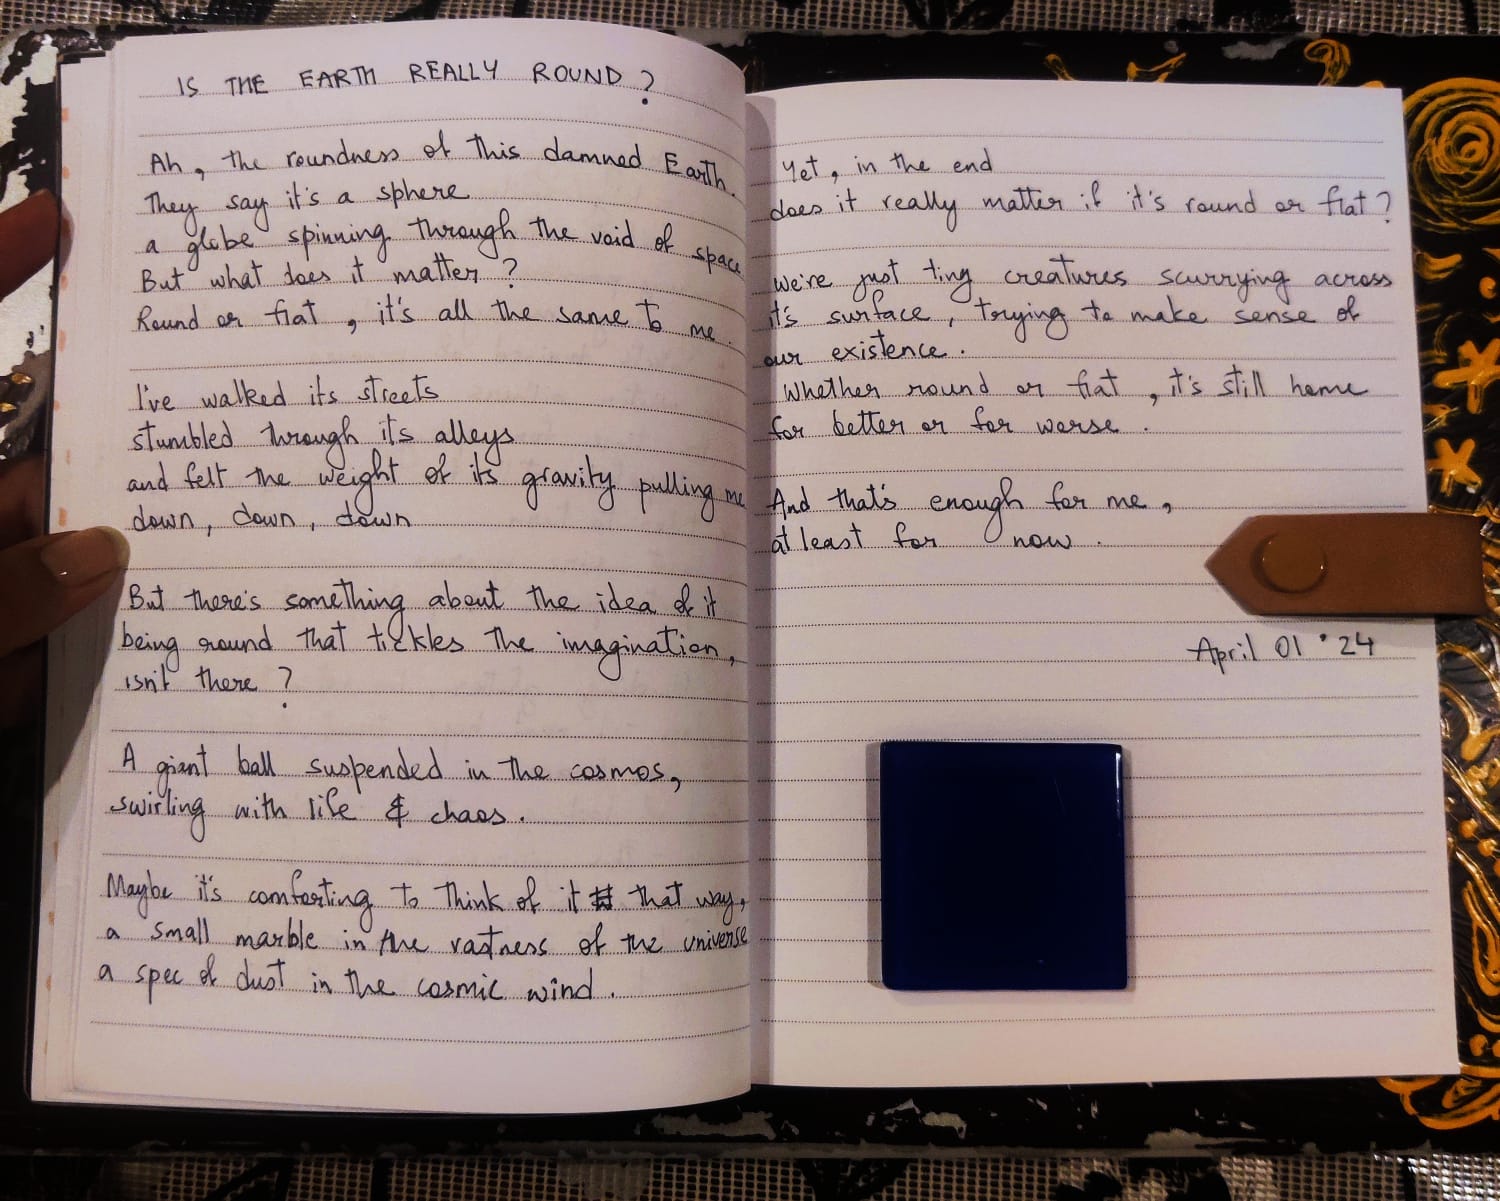 IS THE EARTH REALLY ROUND?
Ah, the roundness of this damned Earth.
They say it's a sphere
a globe spinning through the void of space
But what does it matter?
Round or flat, it's all the same to me.
I've walked its streets
stumbled through its alleys
and felt the weight of its gravity pulling me
down, down, down
But there's something about the idea of it
being round that tickles the imagination,
isn't there?
A giant ball suspended in the cosmos,
swirling with life & chaos.
Maybe it's comforting to think of it that way,
a small marble in the vastness of the universe
a spec of dust in the cosmic wind.
Yet, in the end
does it really matter if it's round or flat?
We're just tiny creatures scurrying across
it's surface, trying to make sense of
our existence.
Whether round or flat, it's still home
for better or for worse.
And that's enough for me,
at least for now.
April 01 '24